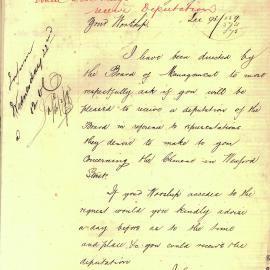 receive Deputation
Your Worship
I have been directed by
the Board of Management to most
respectfully ask if you will be
pleased to receive a deputation of the
Board in reference to representations
they desire to make to you
concerning the Cement in
Street.
If your Worship accedes to the
request would you kindly advise
a day before as to the time
and place &c you could receive the
deputation
Wednesday